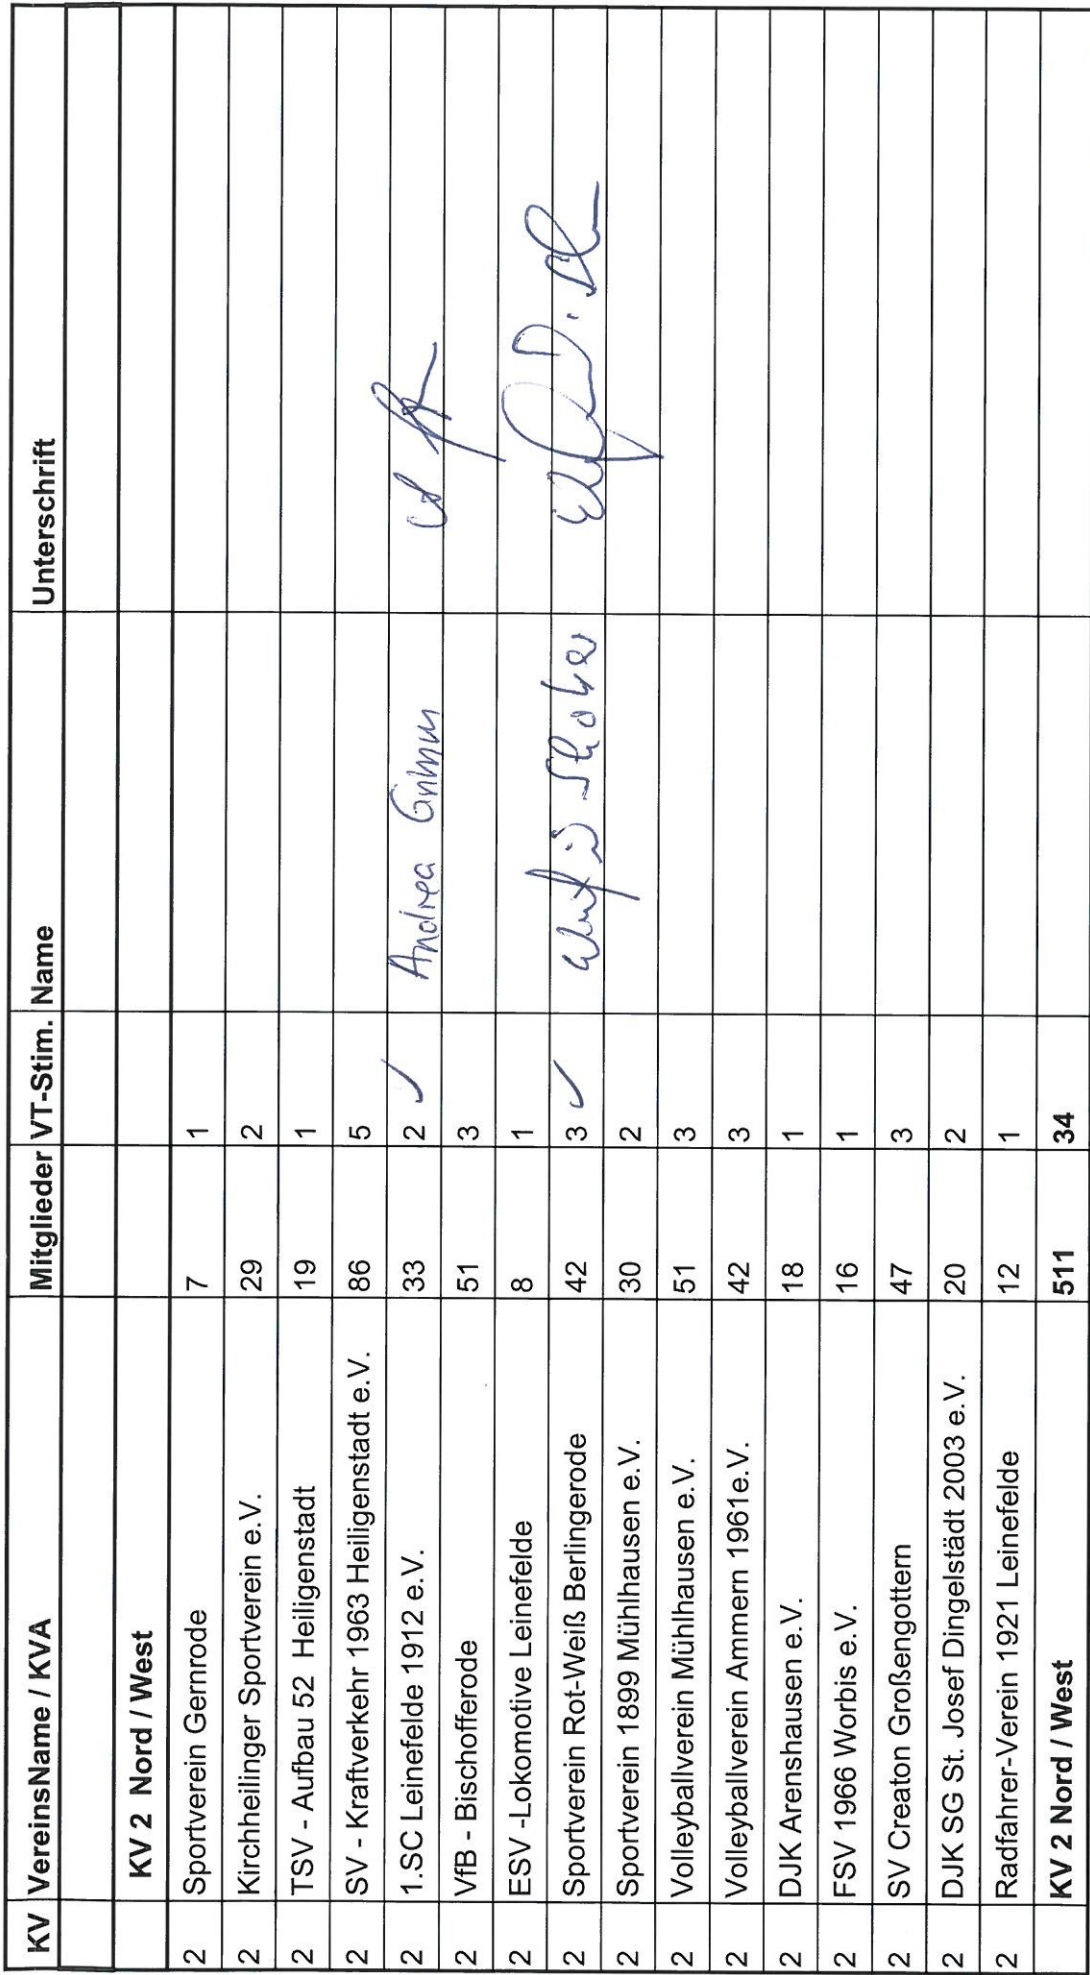 KV VereinsName / KVA Mitglieder VT-Stim. Name Unterschrift
KV 2 Nord / West
2 Sportverein Gernrode 7 1
2 Kirchheilinger Sportverein e.V. 29 2
2 TSV - Aufbau 52 Heiligenstadt 19 1
2 SV - Kraftverkehr 1963 Heiligenstadt e.V. 86 5
2 1.SC Leinefelde 1912 e.V. 33 2 ✓ Andrea Grimm
2 VfB - Bischofferode 51 3
2 ESV -Lokomotive Leinefelde 8 1
2 Sportverein Rot-Weiß Berlingerode 42 3 ✓
2 Sportverein 1899 Mühlhausen e.V. 30 2
2 Volleyballverein Mühlhausen e.V. 51 3
2 Volleyballverein Ammern 1961e.V. 42 3
2 DJK Arenshausen e.V. 18 1
2 FSV 1966 Worbis e.V. 16 1
2 SV Creaton Großengottern 47 3
2 DJK SG St. Josef Dingelstädt 2003 e.V. 20 2
2 Radfahrer-Verein 1921 Leinefelde 12 1
KV 2 Nord / West 511 34